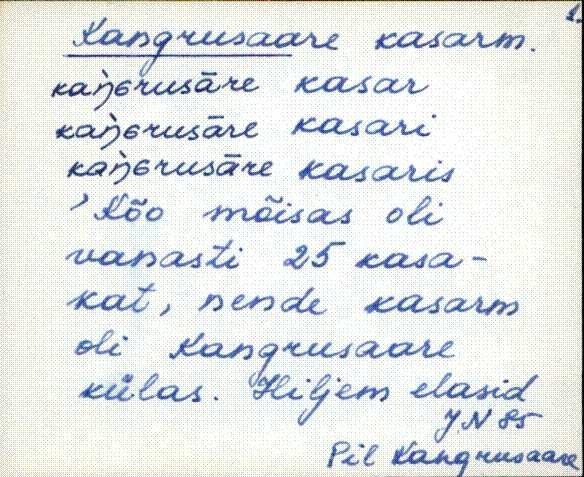 1.
Kangrusaare kasarm.
kaǹ̀ɢrusāre kasar
kaǹ̀ɢrusāre kasari
kaǹ̀ɢrusāre kasaris
’Kõo mõisas oli
vanasti 25 kasa-
kat, nende kasarm
oli Kangrusaare
külas. Hiljem elasid
J.N 85
Pil Kangrusaare